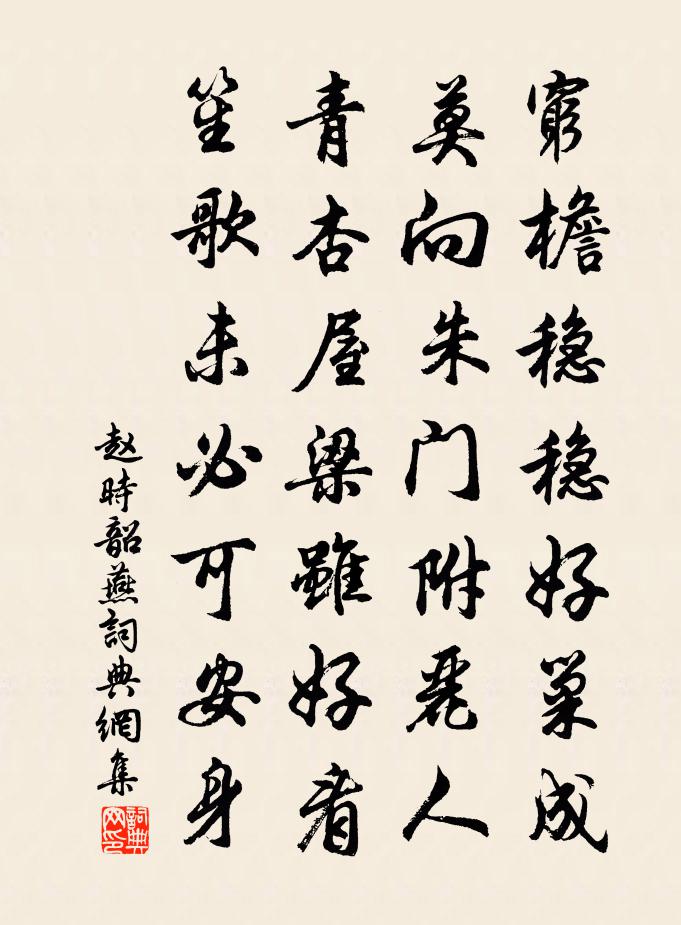 窮檐稳稳好巢成
莫向朱门附丽人
青杏屋梁雖好看
笙歌未必可安身
赵時韶燕詞典網集
詞典
网印